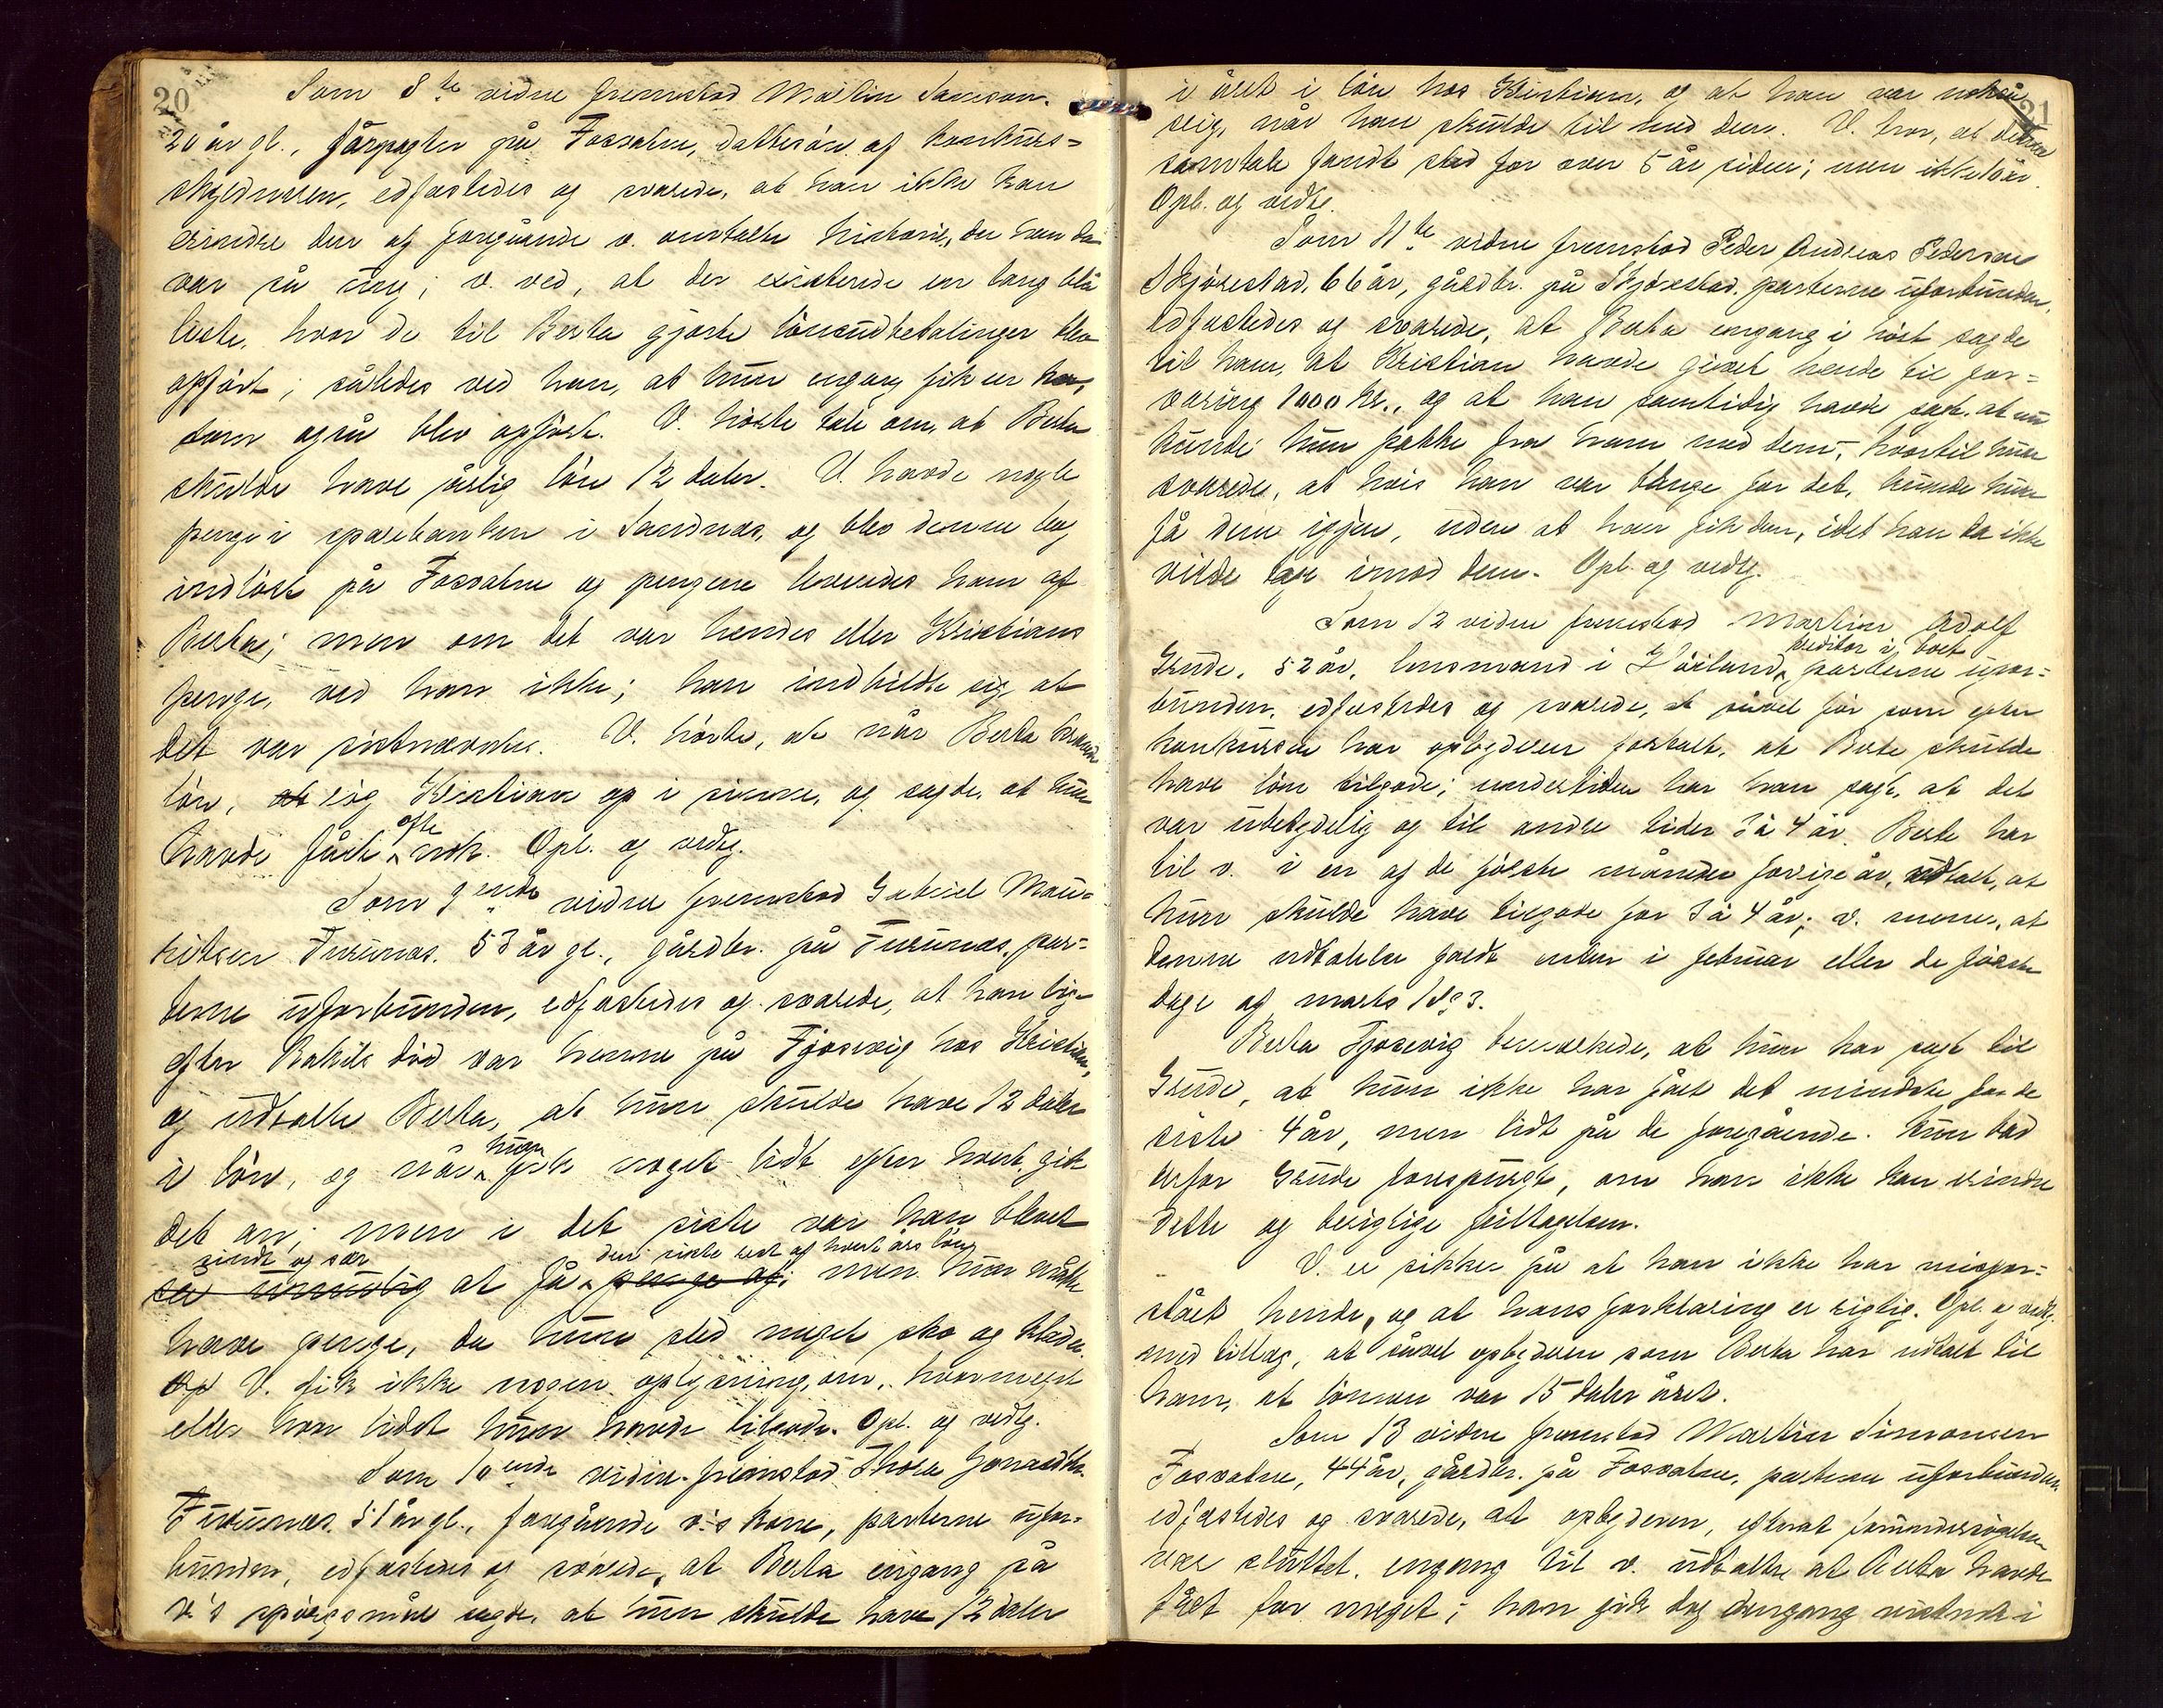 20
Som 8de vidne fremstod Martin Samson.
20 år gl., forpagter på Fosvatne, dattesøn af konkurs=
skyldneren, edfæstedes og svarede, at han ikke kan
erindre den af foregående v. omtalte historie, da han da
var så ung; v. ved, at der existerede en lang blå
liste, hvor de til Berta gjorte lønsudbetalinger blev
opført; således ved han, at hun engang fik en
som også blev opført. V. hørte tale om, at Berta
skulde have årlig løn 12 daler. V. havde nogle
penge i sparebanken i Sandnæs, og blev denne bog
indløst på Fosvatne og pengene leveredes ham af
Berta; men om det var hendes eller Kristians
penge, ved han ikke; han indbildte sig, at
det var sistnævntes. V. hørte, at når Berta krævde
løn, at sig Kristian op i sinne, og sagde, at hun
ofte
havde fået nok. Opl. og vedtg.
Som 9ende vidne fremstod Gabriel Mau=
ritsen Furunæs. 53 år gl., gårdbr. på Furunæs, par=
terne uforbunden, edfæstedes og svarede, at han lige
efter Rakels død var henne på Fjosevig hos Kristian,
og udtalte Berta, at hun skulde have 12 daler
hun
i løn, og når fik noget lidt efter hvert, gik
det an; men i det siste var han blevet
sindt og sær den siste rest af hvert års løn
så umulig at få penge af; men hun måtte
have penge, da hun sled meget sko og klæder.
Op V. fik ikke nogen oplysning om, hvormeget
eller hvor lidet hun havde tilgode. Opl. og vedtg.
Som 10ende vidne fremstod Thora Jonasdtr.
Furunæs. 51 år gl., foregående v.'s kone, parterne ufor=
bunden, edfæstedes og svarede, at Berta engang på
v.'s spørgsmål sagde, at hun skulde have 12 daler
21
i året i løn hos Kristian, og at han var nokså
seig, når han skulde til med dem. V. tror, at denne
samtale fandt sted for over 5 år siden; men ikke 10 år.
Opl. og vedtg.
Som 11te vidne fremstod Peder Andreas Pedersen
Skjørestad, 66 år, gårdbr. på Skjørestad, parterne uforbunden,
edfæstedes og svarede, at Berta engang i høst sagde
til ham, at Kristian havde givet hende til for=
varing 1000 kr., og at han samtidig havde sagt, at nu
kunde hun pakke fra ham med dem, hvortil hun
svarede, at hvis han var bange for det, kunde han
få dem igjen, uden at han fik dem, idet han da ikke
vilde tage imod dem. Opl og vedtg.
Som 12 vidne fremstod Martin Adolf
kreditor i boet
Grude. 52 år, lensmand i Høiland, parterne ufor=
bunden, edfæstedes og svarede, at såvel før som efter
konkursen har opbyderen fortalt, at Berta skulde
have løn tilgode; undertiden har han sagt, at det
var ubetydelig og til andre tider 3 à 4 år. Berta har
til v. i en af de første måneder forrige år, udtalt, at
hun skulde have tilgode for 3 à 4 år; v. mener, at
denne udtalelse faldt enten i februar eller de første
dage af marts 1893.
Berta Fjosevig bemærkede, at hun har sagt til
Grude, at hun ikke har fået det mindste for de
siste 4 år, men lidt på de foregående. Hun bad
derfor Grude forespurgt, om han ikke kan erindre
dette og berigtige feiltagelsen.
V. er sikker på at han ikke har misfor=
stået hende, og at hans forklaring er rigtig. Opl. og vedtg.
med tillæg, at såvel opbyderen som Berta har udtalt til
ham, at lønnen var 15 daler året.
Som 13 vidne fremstod Martin Simonsen
Fosvatne, 44 år, gårdbr. på Fosvatne, parterne uforbunden,
edfæstedes og svarede, at opbyderen, efterat forundersøgelsen
var sluttet, engang til v. udtalte at Berta havde
fået for meget; han gik dog dengang i